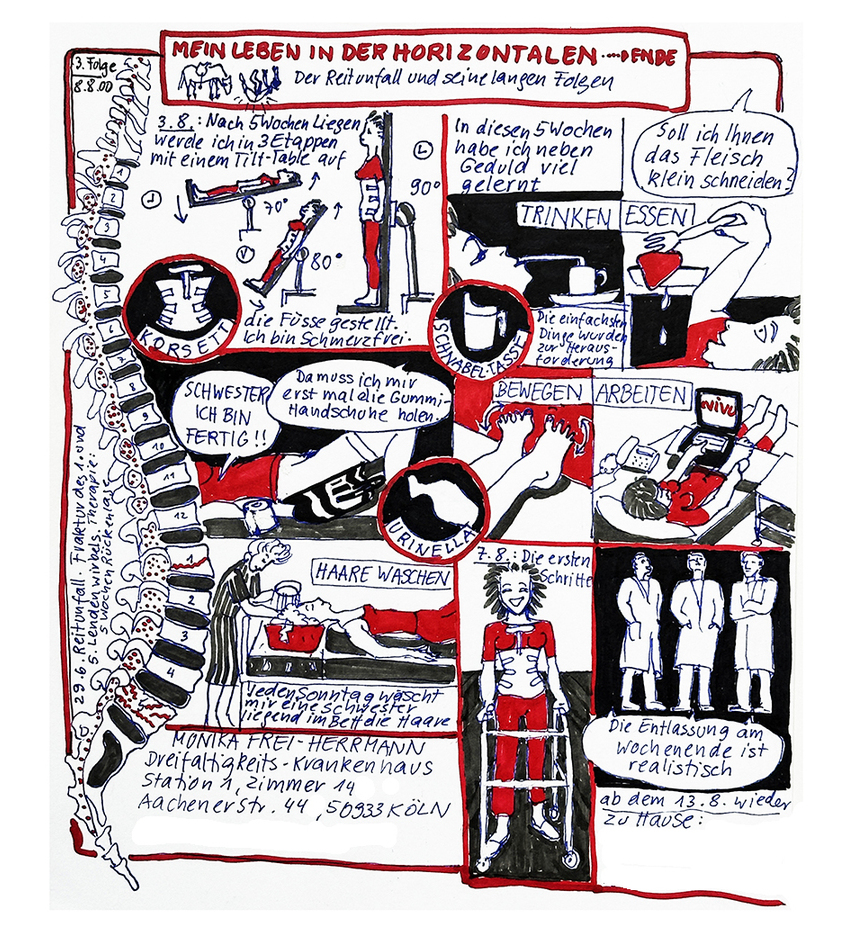 3. Folge
8.8.00
MEIN LEBEN IN DER HORIZONTALEN ····→ ENDE
Der Reitunfall und seine langen Folgen
3.8.: Nach 5 Wochen Liegen
werde ich in 3 Etappen
mit einem Tilt-Table auf
70°
80°
90°
die Füsse gestellt.
Ich bin Schmerzfrei.
KORSETT
In diesen 5 Wochen
habe ich neben
Geduld viel
gelernt
Soll ich Ihnen
das Fleisch
klein schneiden?
TRINKEN
ESSEN
SCHNABEL-TASSE
Die einfachsten
Dinge wurden
zur Heraus-
forderung
SCHWESTER
ICH BIN
FERTIG!!
Da muss ich mir
erst mal die Gummi-
Handschuhe holen...
BEWEGEN
ARBEITEN
vivu
URINELLA
HAARE WASCHEN
Jeden Sonntag wäscht
mir eine Schwester
liegend im Bett die Haare
7.8.: Die ersten
Schritte
Die Entlassung am
Wochenende ist
realistisch
ab dem 13.8. wieder
zu Hause:
29.6. Reitunfall - Fraktur des 1. und
5. Lendenwirbels. Therapie:
5 Wochen Rückenlage
1
2
3
4
5
6
7
8
9
10
11
12
1
2
3
4
MONIKA FREI-HERRMANN
Dreifaltigkeits-Krankenhaus
Station 1, Zimmer 14
Aachenerstr. 44, 50933 KÖLN